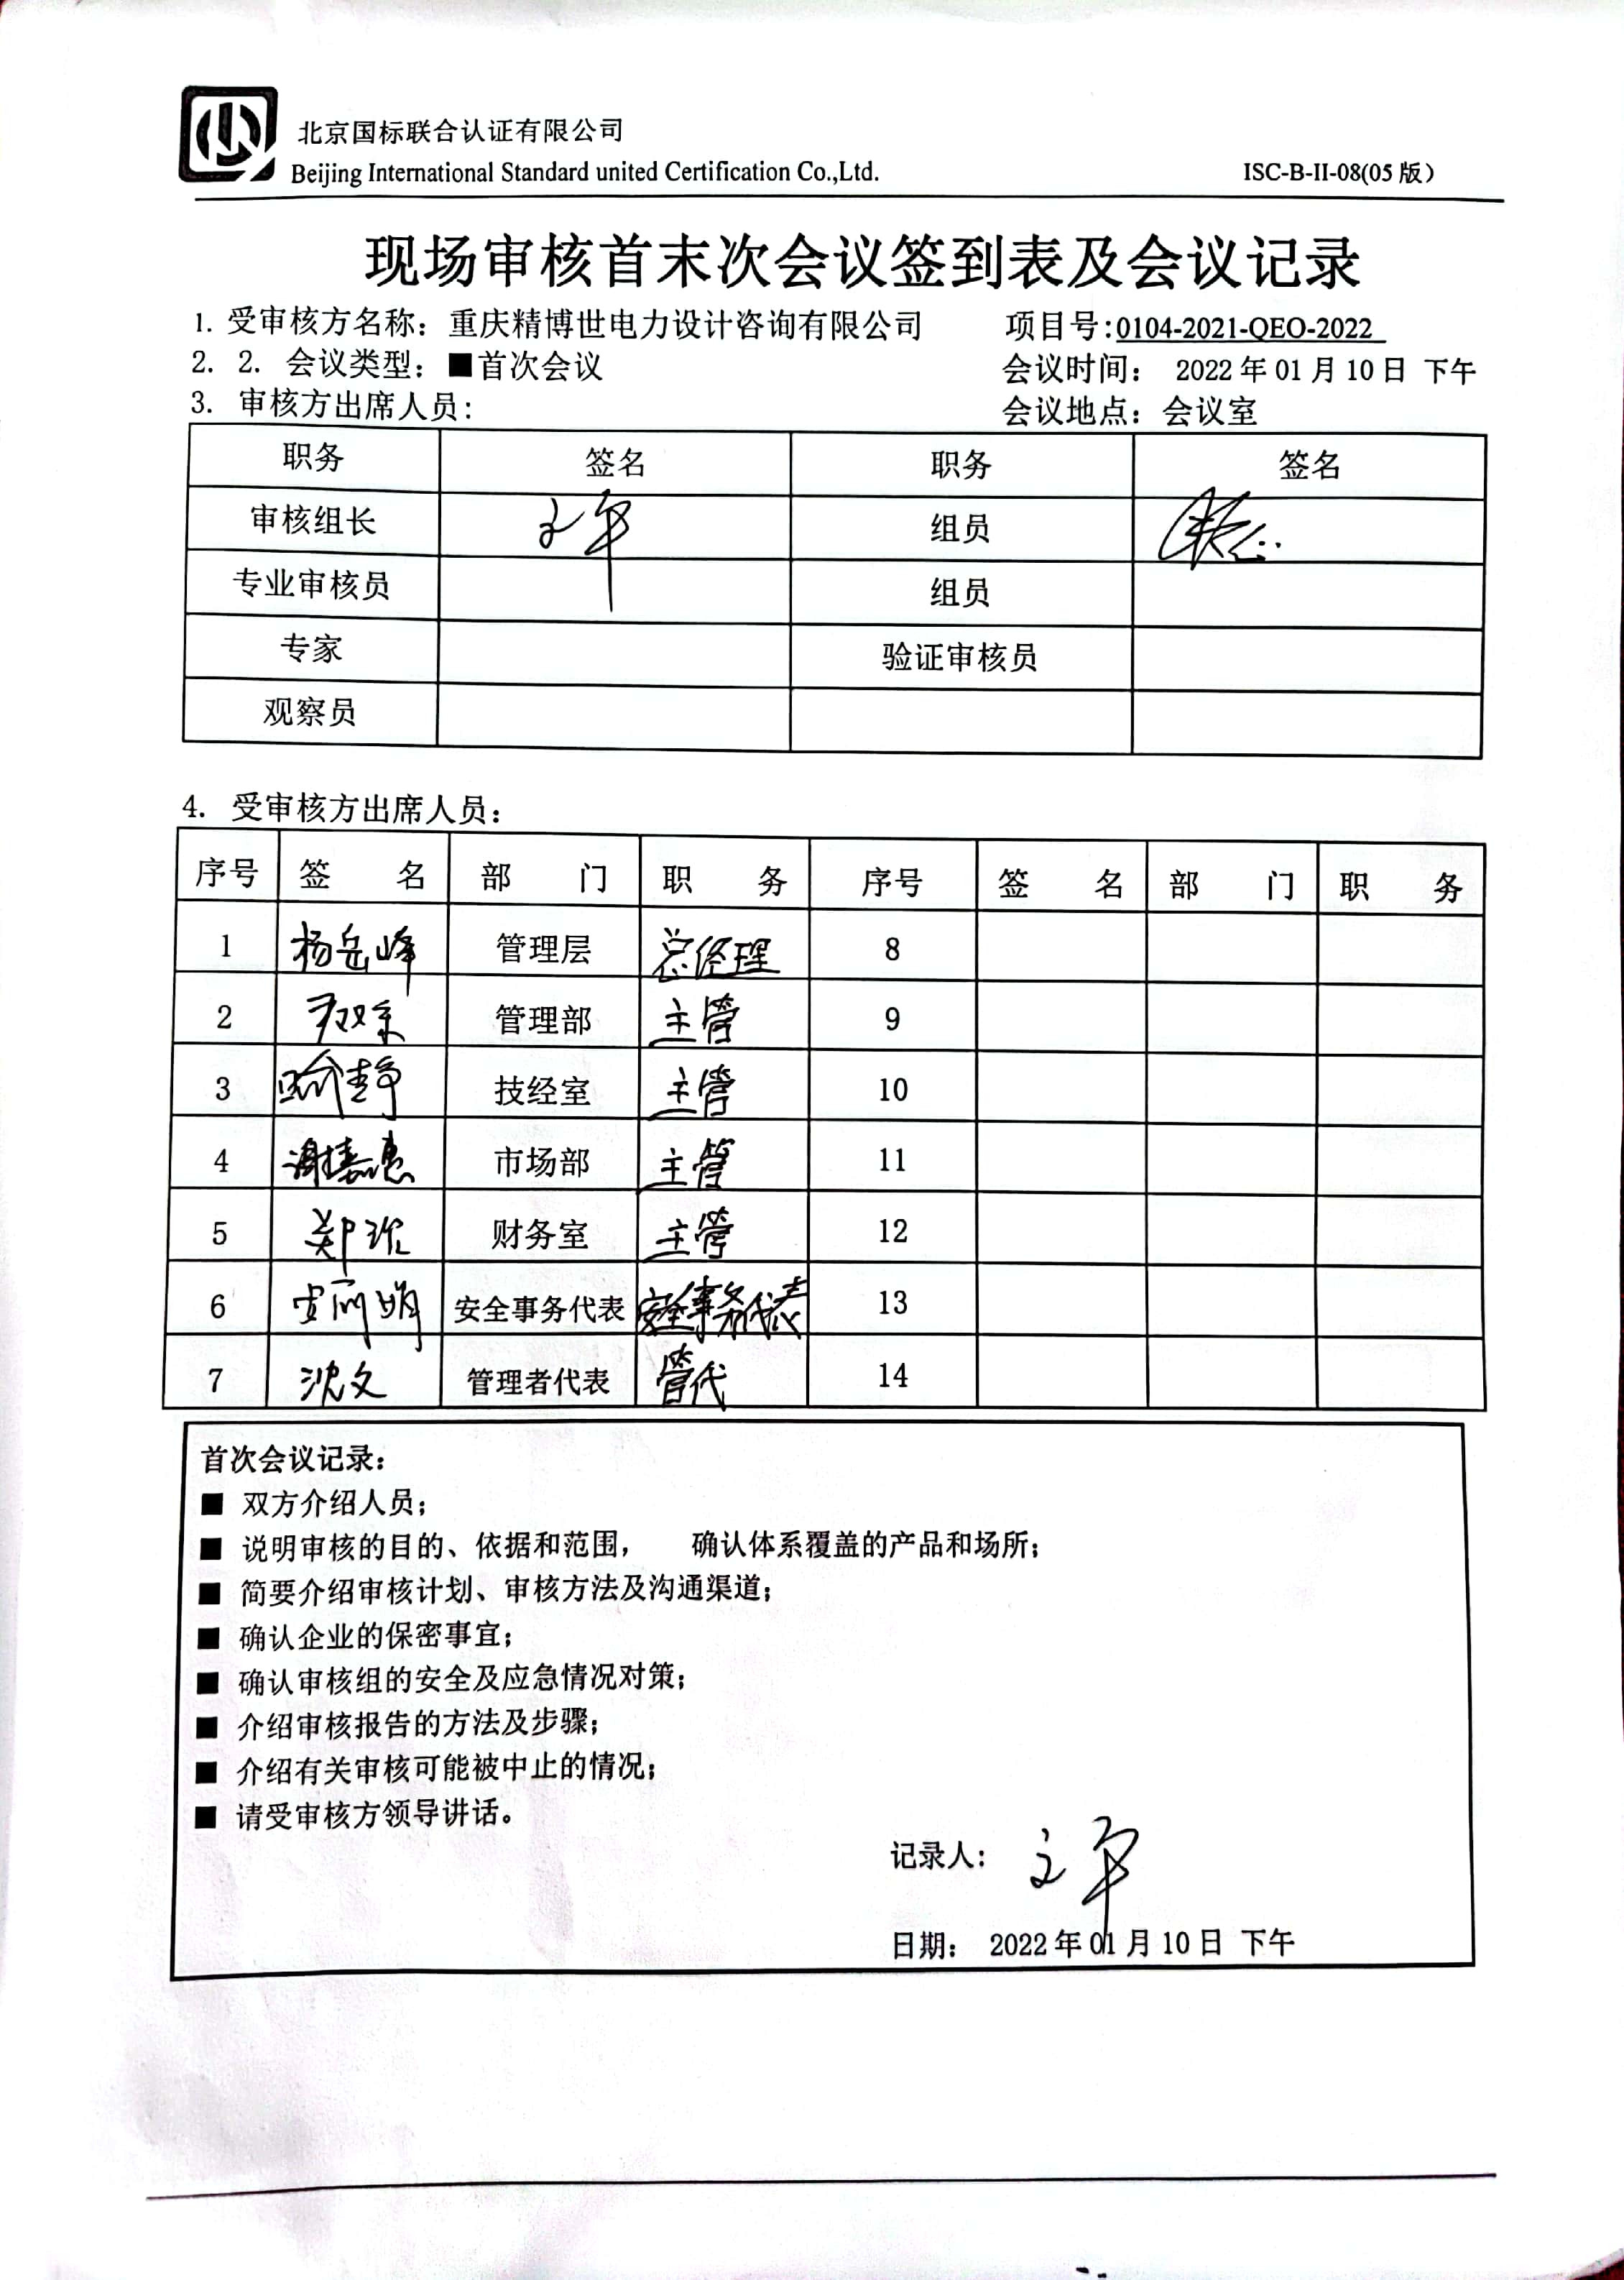 北京国标联合认证有限公司
Beijing International Standard united Certification Co.,Ltd.
ISC-B-II-08(05 版)
现场审核首末次会议签到表及会议记录
1. 受审核方名称：重庆精博世电力设计咨询有限公司 项目号:0104-2021-QEO-2022
2. 2. 会议类型：■首次会议 会议时间： 2022 年 01 月 10 日 下午
3. 审核方出席人员： 会议地点：会议室
职务 签名 职务 签名
审核组长 文平 组员
专业审核员 组员
专家 验证审核员
观察员
4. 受审核方出席人员：
序号 签 名 部 门 职 务 序号 签 名 部 门 职 务
1 杨岳峰 管理层 总经理 8
2 管理部 主管 9
3 喻静 技经室 主管 10
4 谢嘉惠 市场部 主管 11
5 财务室 主管 12
6 安全事务代表 安全事务代表 13
7 沈文 管理者代表 管代 14
首次会议记录：
■ 双方介绍人员；
■ 说明审核的目的、依据和范围， 确认体系覆盖的产品和场所；
■ 简要介绍审核计划、审核方法及沟通渠道；
■ 确认企业的保密事宜；
■ 确认审核组的安全及应急情况对策；
■ 介绍审核报告的方法及步骤；
■ 介绍有关审核可能被中止的情况；
■ 请受审核方领导讲话。
记录人： 文平
日期： 2022 年 01 月 10 日 下午